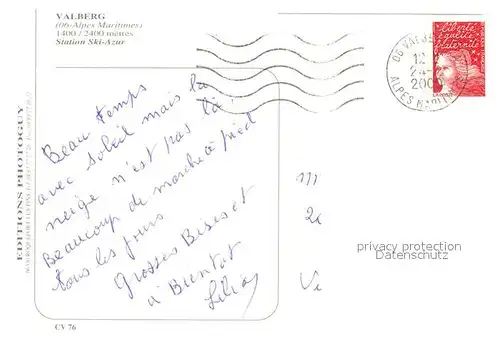 VALBERG
(06-Alpes Maritimes)
1400 / 2400 mètres
Station Ski-Azur
liberté
égalité
fraternité
LA POSTE
06 VALBERG
12
24-
200
ALPES MARITIMES
EDITIONS PHOTOGUY
Beau temps
avec soleil mais la
neige n'est pas là,
Beaucoup de marche à pied
tous les jours
Grosses Bises et
à Bientôt
Lilian
privacy protection
Datenschutz
CV 76